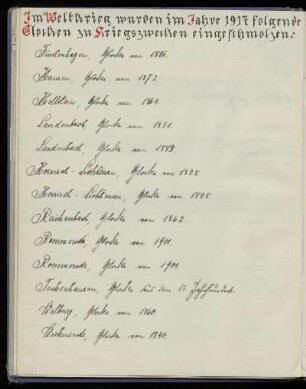 Im Weltkrieg wurden im Jahre 1917 folgende
Glocken zu Kriegszwecken eingeschmolzen:
Glocke von
Hausen, Glocke von 1872.
Glocke von 1864.
Laudenbach, Glocke von 1851.
Laudenbach, Glocke von
Hessisch-Lichtenau, Glocke von
Hessisch-Lichtenau, Glocke von
Reichenbach, Glocke von 1862.
Rommerode, Glocke von 1901.
Rommerode, Glocke von 1901.
Glocke aus dem 15. Jahrhundert.
Glocke von 1860.
Wickenrode, Glocke von 1840.